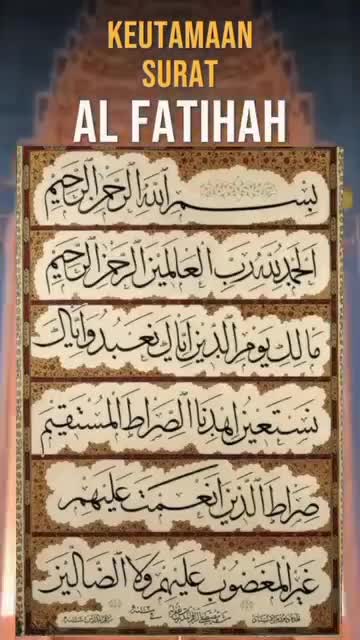 KEUTAMAAN
SURAT
AL FATIHAH
بسم الله الرحمن الرحيم
الحمد لله رب العالمين الرحمن الرحيم
مالك يوم الدين اياك نعبد واياك
نستعين اهدنا الصراط المستقيم
صراط الذين انعمت عليهم
غير المغضوب عليهم ولا الضالين